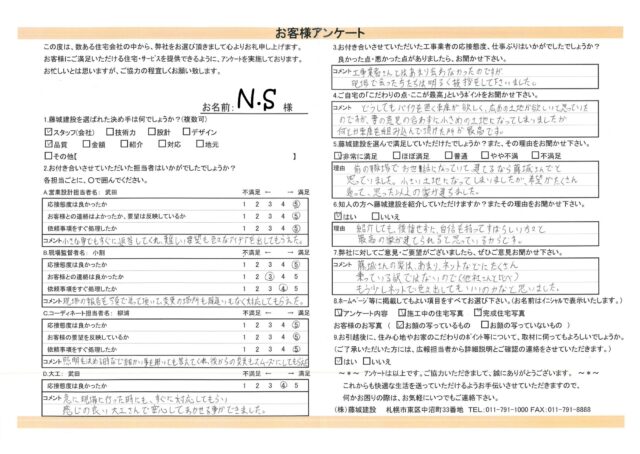 お客様アンケート
この度は、数ある住宅会社の中から、弊社をお選び頂きまして心よりお礼申し上げます。
お客様にご満足いただける住宅・サービスを提供できるように、アンケートを実施しております。
お忙しいとは思いますが、ご協力の程宜しくお願い致します。
お名前: N.S 様
1.藤城建設を選ばれた決め手は何でしょうか?(複数可)
スタッフ(会社) 技術力 設計 デザイン
品質 金額 紹介 対応 地元
その他【 】
2.お付き合いさせていただいた担当者はいかがでしたでしょうか?
各担当ごとに、〇で囲んでください。
A.営業設計担当者名: 武田 不満足 ← → 満足
応接態度は良かったか 1 2 3 4 ⑤
お客様との連絡はよかったか、要望は反映しているか 1 2 3 4 ⑤
依頼事項をすぐ処理したか 1 2 3 4 ⑤
コメント 小さな事でもすぐに返答してくれ、難しい要望も色々なアイデアを出してもらえた。
B.現場監督者名: 小割 不満足 ← → 満足
応接態度は良かったか 1 2 3 4 ⑤
お客様との連絡は良かったか 1 2 ③ 4 5
依頼事項をすぐ処理したか 1 2 3 ④ 5
コメント
C.コーディネート担当者名: 柳浦 不満足 ← → 満足
応接態度は良かったか 1 2 3 4 ⑤
お客様との連絡はよかったか、要望は反映しているか 1 2 3 4 ⑤
依頼事項をすぐ処理したか 1 2 3 4 ⑤
コメント
D.大工: 武田 不満足 ← → 満足
応接態度は良かったか 1 2 3 ④ 5
コメント 急に現場に行った時にも、すぐに対応してもらい
感じの良い大工さんで安心しておまかせる事ができました。
3.お付き合いさせていただいた工事業者の応接態度、仕事ぶりはいかがでしたでしょうか?
良かった点・悪かった点がありましたら、お聞かせ下さい。
コメント 工事業者さんとはあまり会わなかったのですが
現場で会った方たちは明るく挨拶をして下さいました。
4.ご自宅の「こだわりの点・ここが最高」というポイントをお聞かせ下さい。
コメント
5.藤城建設を選んで満足していただけでしょうか?また、その理由をお聞かせ下さい。
非常に満足 ほぼ満足 普通 やや不満 不満足
理由
6.知人の方へ藤城建設を紹介していただけますか?またその理由をお聞かせ下さい
はい いいえ
理由 紹介しても、後悔せずに、自信を持ってすばらしい方々と
最高の家が建てられると思っているからです。
7.弊社に対してご意見・ご要望がございましたら、ぜひご意見お聞かせ下さい。
コメント 藤城さんの家は、あまり、ネットなどにたくさん
乗っている訳ではないので(他社さん比べ)
もう少しネットで色々出してもいいのかなと思いました。
8.ホームページ等に掲載してもよい項目をすべてお選び下さい。(お名前はイニシャルで表示いたします。)
アンケート内容 施工中の住宅写真 完成住宅写真
お客様のお写真( お顔の写っているもの お顔の写っていないもの )
9.お引越後に、住み心地やお家のこだわりのポイント等について、取材に伺ってもよろしいでしょうか。
(ご了承いただいた方には、広報担当者から詳細説明とご確認の連絡をさせていただきます。)
はい いいえ
～＊～ アンケートは以上です。ご協力いただきまして、誠にありがとうございます。 ～＊～
これからも快適な生活を送っていただけるようお手伝いさせていただきますので、
何かお困りの際は、お気軽にいつでもご連絡下さい。
(株)藤城建設 札幌市東区中沼町33番地 TEL:011-791-1000 FAX:011-791-8888